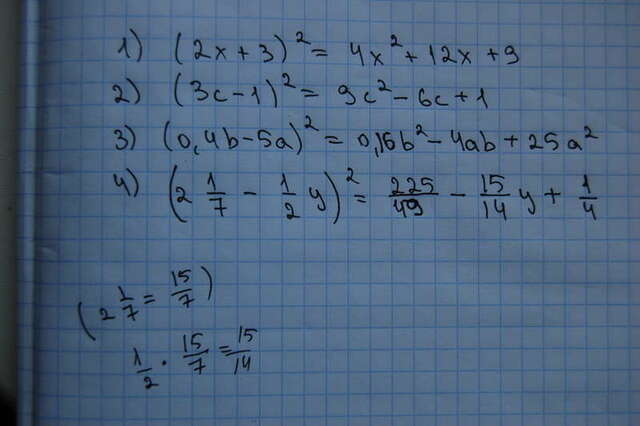 1) (2x + 3)² = 4x² + 12x + 9
2) (3c - 1)² = 9c² - 6c + 1
3) (0,4b - 5a)² = 0,16b² - 4ab + 25a²
4) (2 1/7 - 1/2 y)² = 225/49 - 15/14 y + 1/4
(2 1/7 = 15/7)
1/2 · 15/7 = 15/14